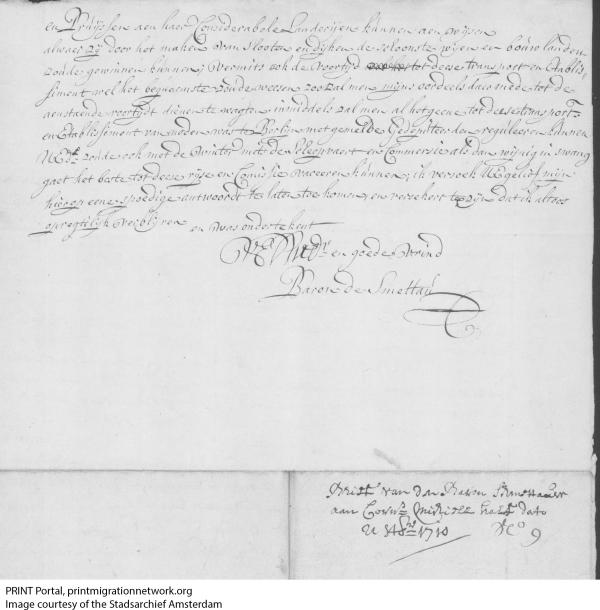 en Pruÿssen aen haer Considerabele Landerijen kunnen aenwijsen
alwaer zij door het maken van slooten en dijken de schoonste wijen en bouwlanden
zoude gewinnen kunnen; vermits ook de voortijd tot deese transport en Etablis,
siment wel het bequaemste zoude weesen zoo zal men mijns oordeels daermede tot de
aenstaende voortijdt dienen te wagten inmiddels zal men al hetgeene tot deese transport
en Etablissiment van noden was te Berlijn met gemelde Gedeputeerden reguleeren kunnen
zoude ook met de winter met de en Commersie als dan wijnig in swang
gaet het beste tot deese rijse en Comissie vaceeren kunnen; ik versoek UEgelieft mijn
hierop eene spoedige antwoordt te laten toe komen en versekert te zijn dat ik altoos
opregtelijk verblijven en was ondertekent
en goede Vrind
Baron de Smettau
Brief van den Baron Smettau
aan
1710 No 9
PRINT Portal, printmigrationnetwork.org
Image courtesy of the Stadsarchief Amsterdam